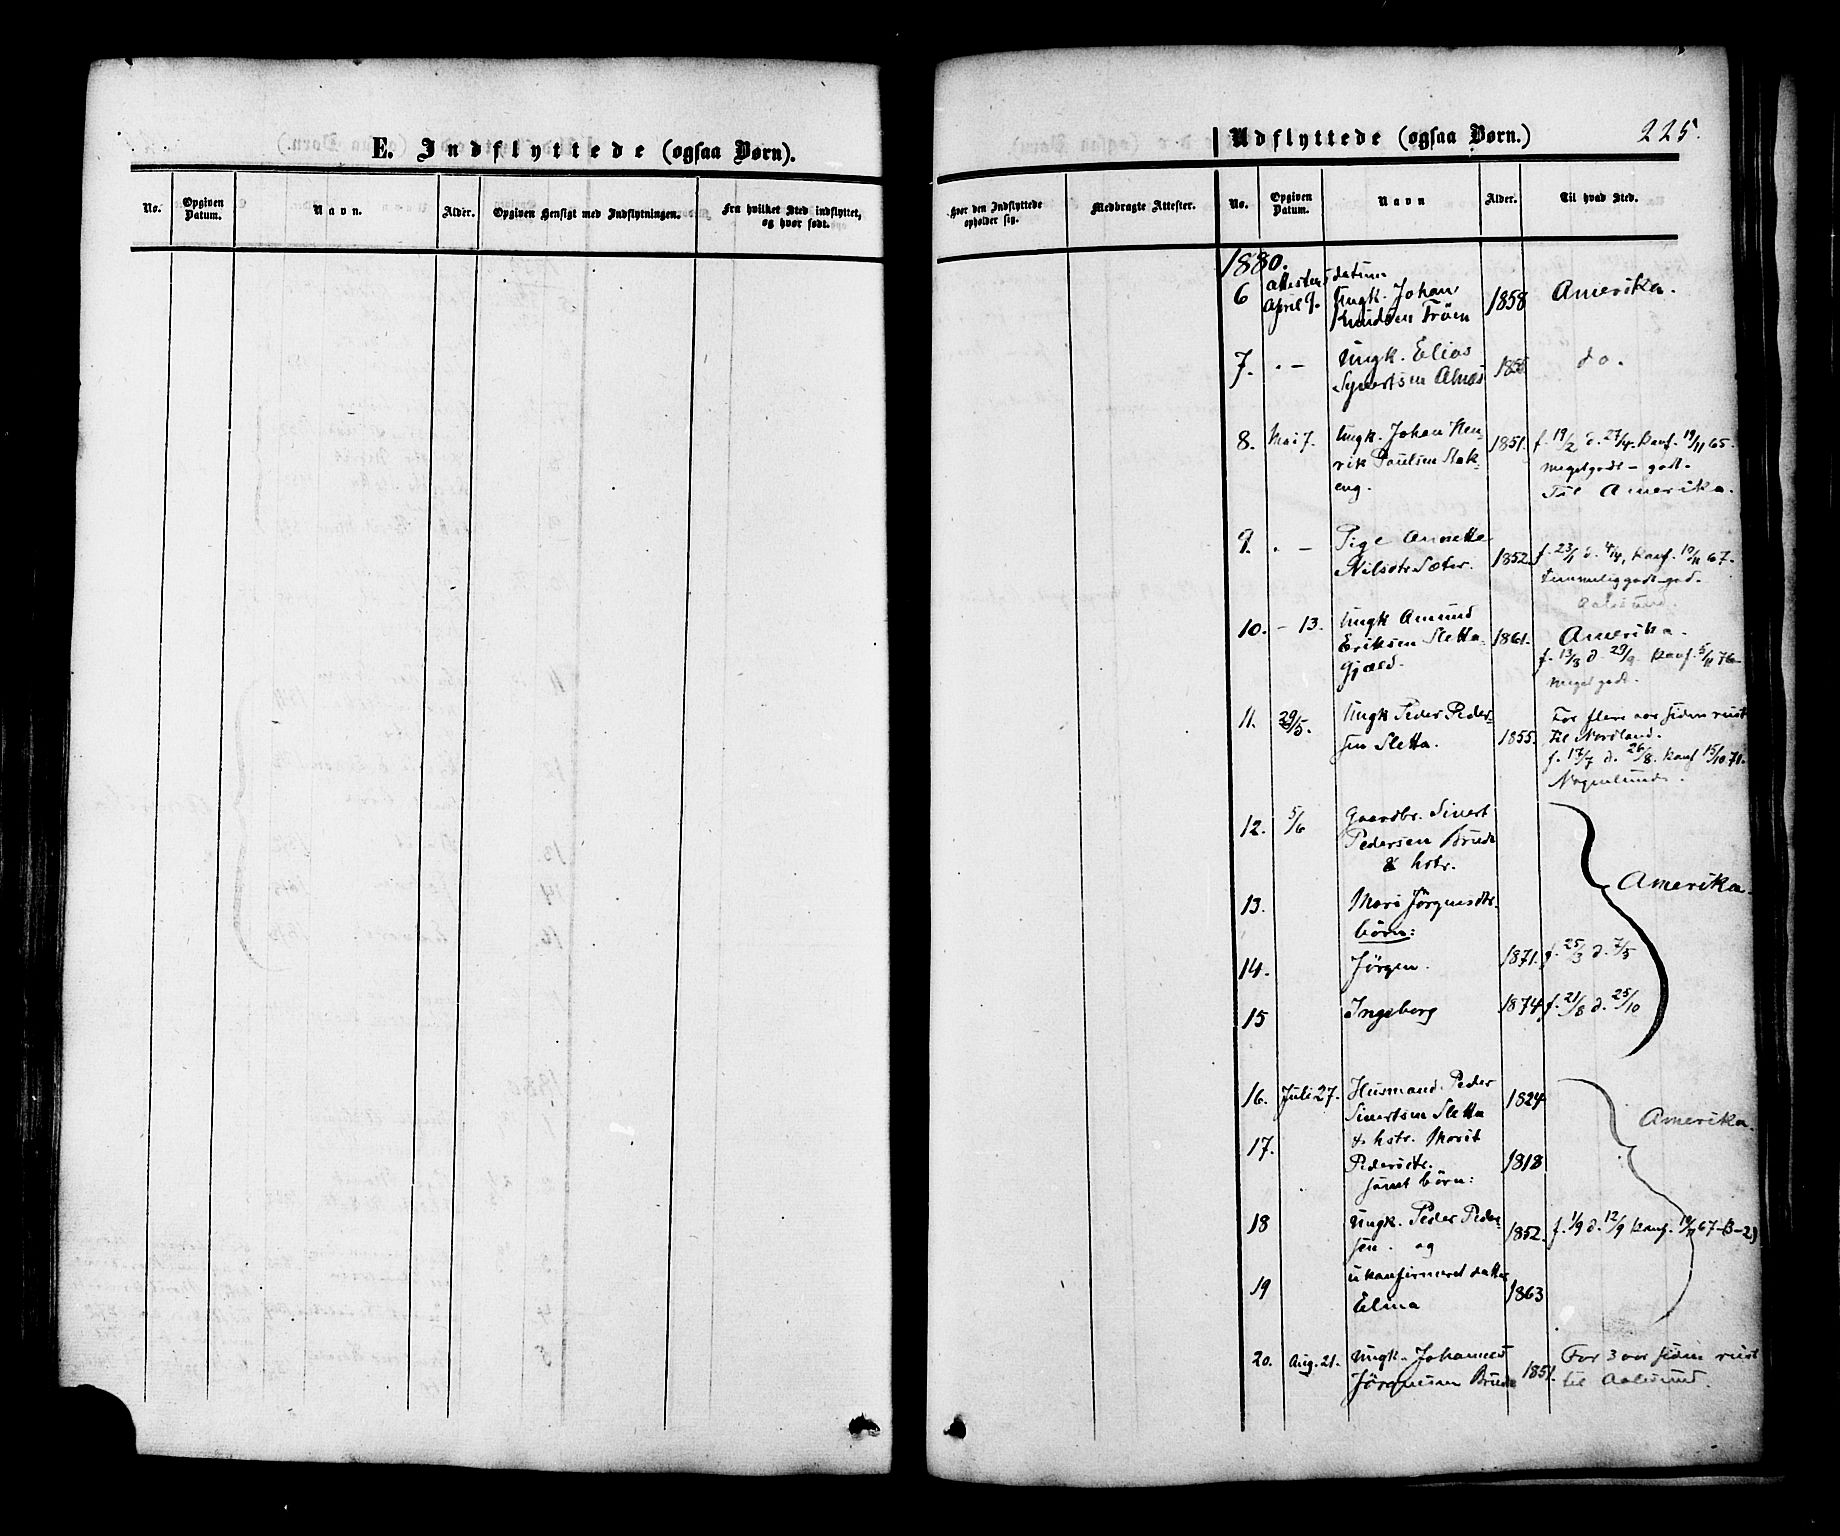 E. Indflyttede (ogsaa Børn).
No.
Opgiven Datum.
Navn.
Alder.
Opgiven Hensigt med Indflytningen.
Fra hvilket Sted indflyttet, og hvor født.
Udflyttede (ogsaa Børn.)
225.
Hvor den Indflyttede opholder sig.
Medbragte Attester.
No.
Opgiven Datum.
Navn
Alder.
Til hvad Sted.
1880.
attestens datum
6 April 9. Ungk. Johan 1858 Amerika.
Knudsen Tröen
7. . — Ungk. Elias 1855 do.
Syvertsen Alnæs
8. Mai 7. Ungk. Johan Hen- 1851. f. 19/2 d. 27/4. konf. 19/11 65.
rik Paulsen Stok- megetgodt – godt.
eng. Til Amerika.
9. . — Pige Annette
Nilsdtr Sæter. 1852. f. 23/1 d. 4/4, konf. 10/11 67.
temmeliggodt–god.
Aalesund.
10. – 13. Ungk Amund Amerika.
Eriksen Sletta 1861. f. 13/8 d. 29/9. konf. 5/11 76–
Gjæld. megetgodt.
11. 29/5. Ungk Peder Peder- For flere aar siden reist
sen Sletta. 1855. til Nordland.
f. 17/7 d. 26/8. konf 15/10 71.
Nogenlunde.
12. 5/6 Gaardbr. Sivert
Pedersen Brude
& hstr. Amerika.
13. Mari Jörgensdtr.
börn:
14. Jörgen. 1871. f. 25/3 d. 7/5
15 Ingeborg 1874 f. 21/8 d. 25/10
16. Juli 27. Husmand. Peder 1824
Sivertsen Sletta Amerika.
17. & hstr. Marit
Pedersdtr. 1818
samt börn:
18 Ungk. Peder Peder- 1852. f. 1/9 d. 12/9 konf. 10/11 67–B–2)
sen. og
19 ukonfirmeret datter 1863
Elina
20. Aug. 21. Ungk. Johannes 1851. For 3 aar siden reist
Jörgensen Brude til Aalesund.